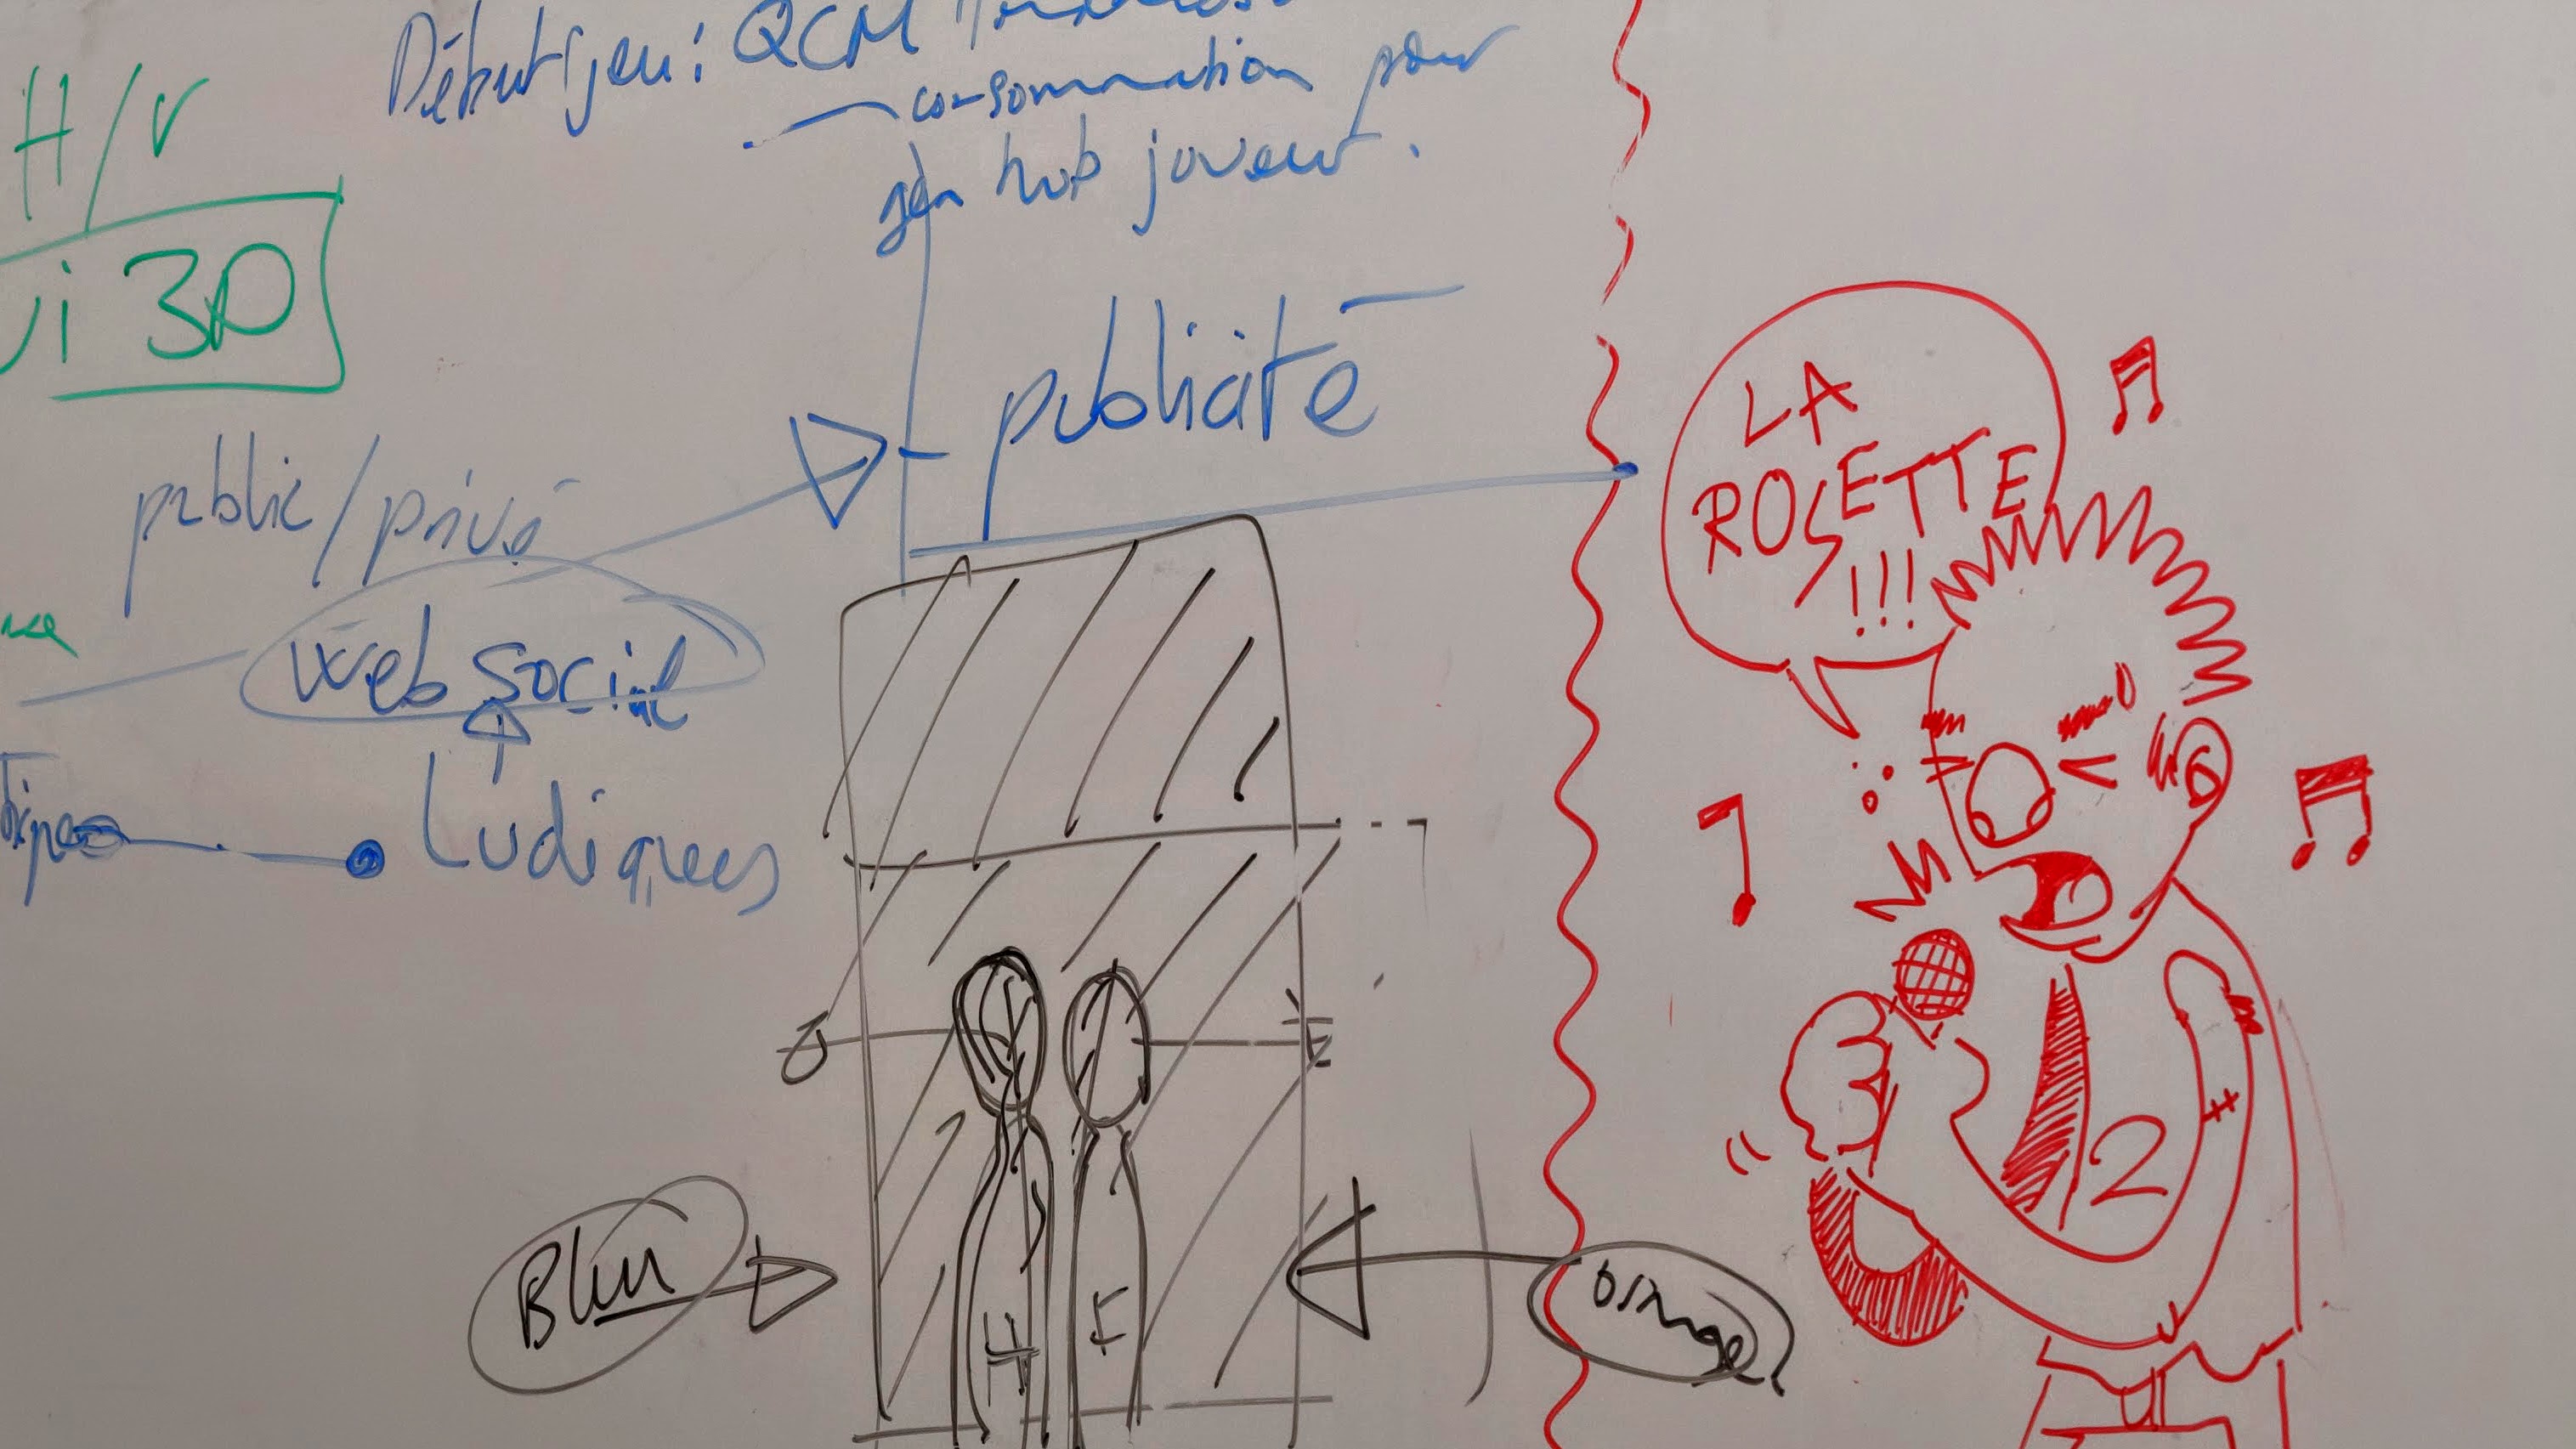 Début jeu : QCM
consommation pour
gén hub joueur.
H/V
3D
publicité
public/privé
web social
Ludiques
LA
ROSETTE
!!!
2
Bleu
orange
H
F